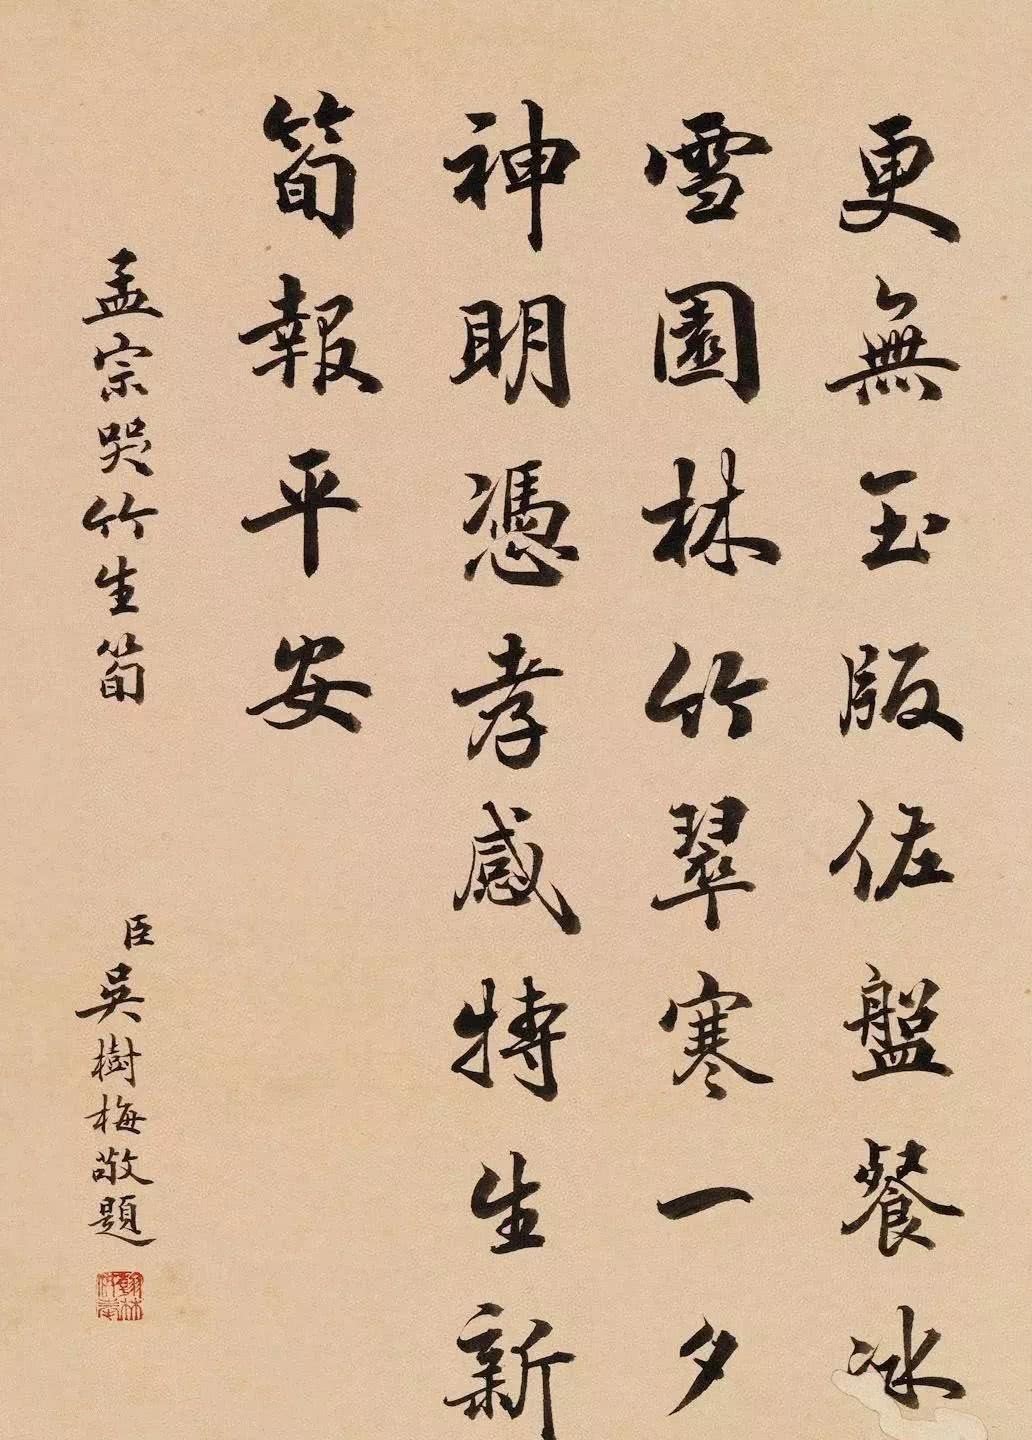 更無玉版佐盤餐冰
雪園林竹翠寒一夕
神明憑孝感特生新
筍報平安
孟宗哭竹生筍
臣吳樹梅敬題